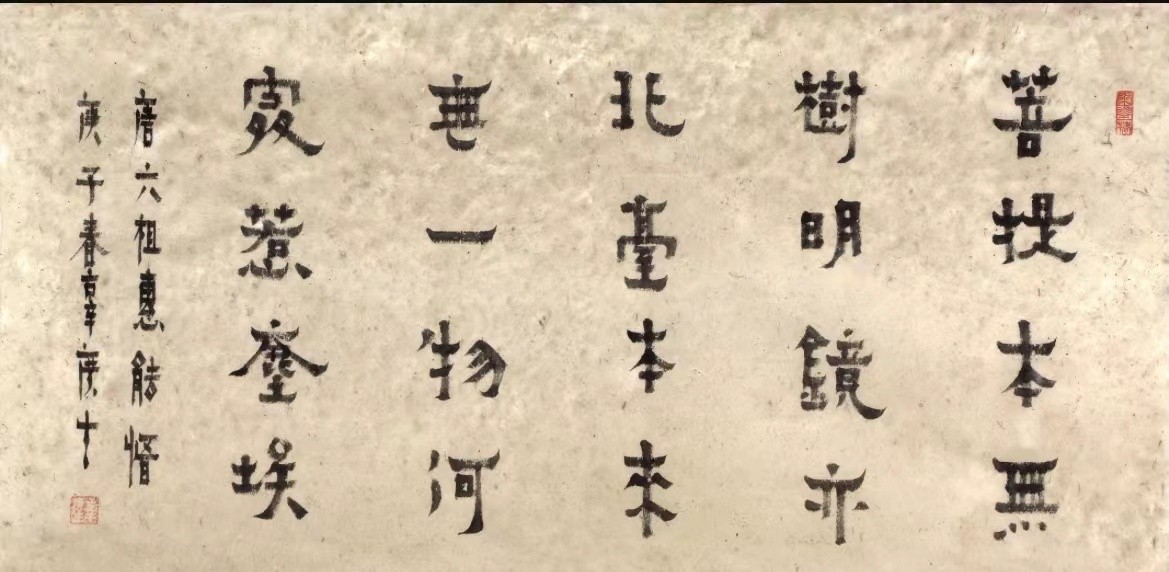 菩提本無
樹明鏡亦
非臺本來
無一物何
處惹塵埃
唐六祖惠能
庚子春